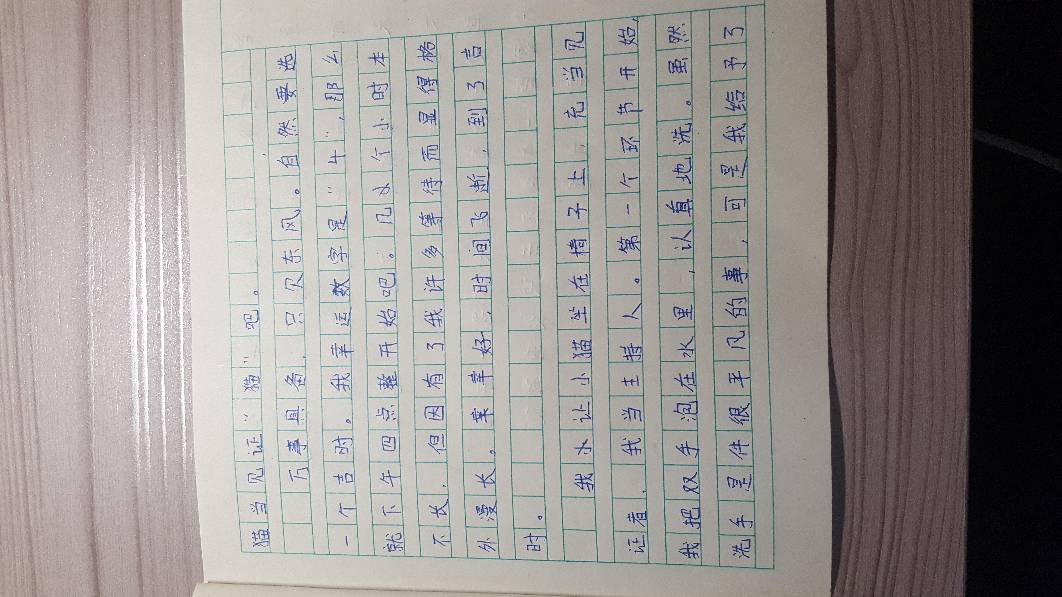 猫当见证"猫"吧。
万事具备,只贝东风。自然要选
一个吉时。我幸运数字是"4",那么
就下午四点整开始吧。几个小时本
不长,但因有了我许多等待而显得格
外漫长。幸幸好,时间飞逝,到了吉
时。
我小让小猫坐在椅子上,充当见
证者,我当主持人。第一个环节开始,
我把双手泡在水里,认真地洗。虽然
洗手是件很平凡的事,可是我给予了